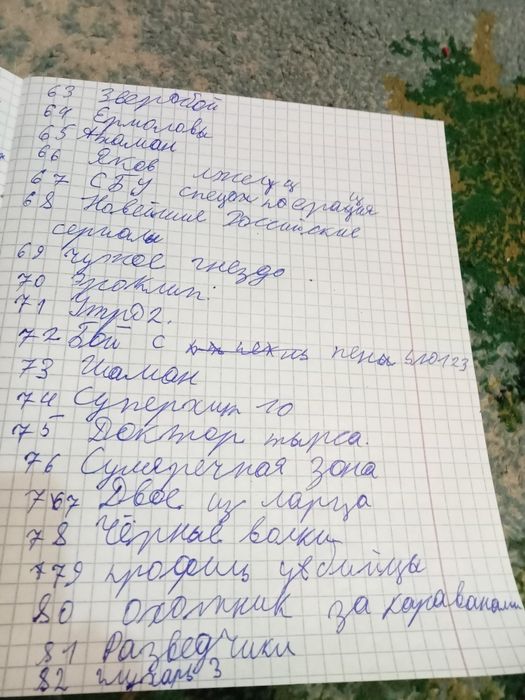 63 Зверобой
64 Ермоловы
65 Атаман
66 Яков
67 СБУ спецоперация
68 Новейшие Российские
сериалы
69 Чужое гнездо
70
71 УГРО2.
72 Бой с пены
73 Шаман
74 Суперхит 10
75 Доктор тырса.
76 Сумеречная зона
767 Двое из ларца
78 Чёрные волки
779 профиль убийцы
80 охотник за караванами
81 Разведчики
82 глухарь 3